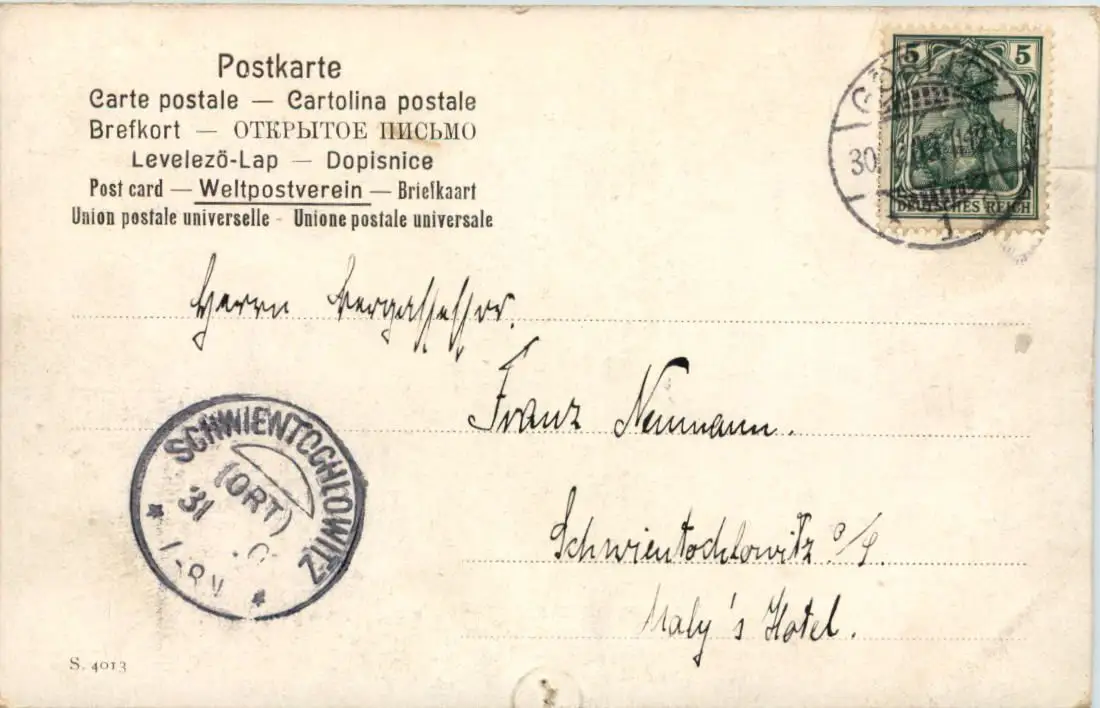 Postkarte
Carte postale — Cartolina postale
Brefkort — ОТКРЫТОЕ ПИСЬМО
Levelezö-Lap — Dopisnice
Post card — Weltpostverein — Briefkaart
Union postale universelle - Unione postale universale
5 5
DEUTSCHES REICH
30
1
Herrn Bergassessor.
Franz Neumann.
Schwientochlowitz o/S.
Maly's Hotel.
SCHWIENTOCHLOWITZ
(ORT)
31
1-8V
S. 4013